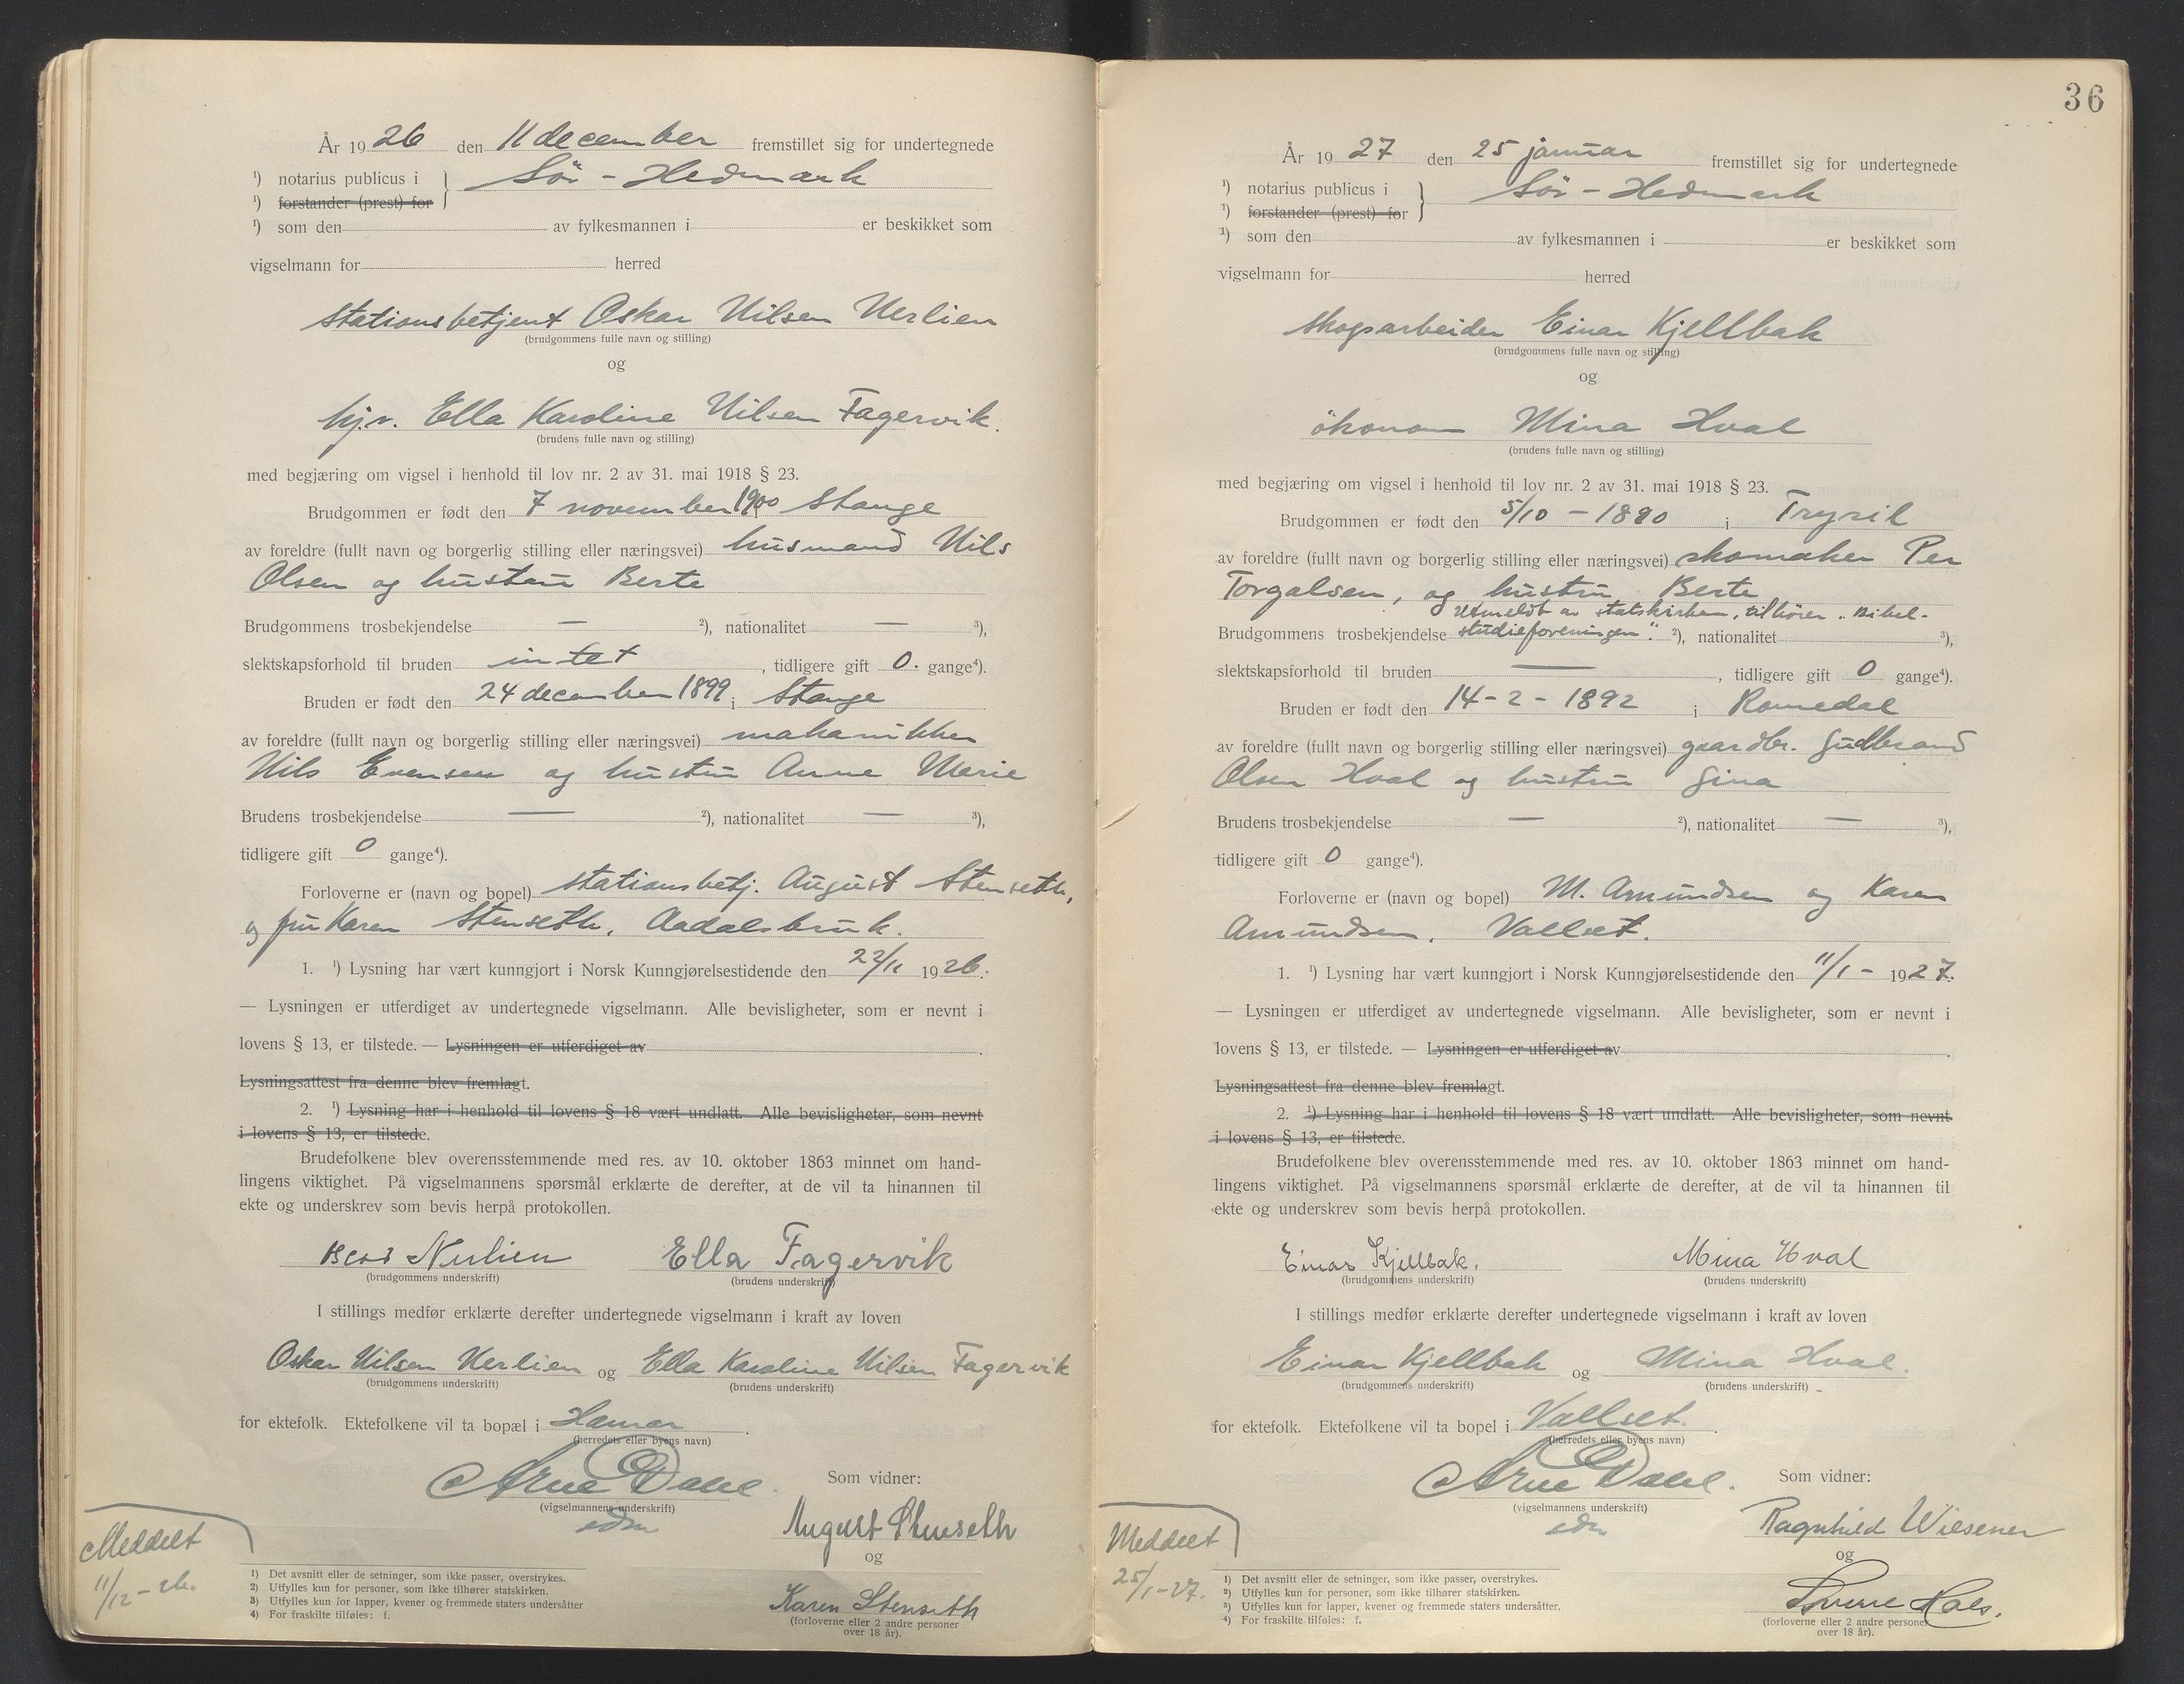 År 1926 den 11 december fremstillet sig for undertegnede
¹) notarius publicus i } Sör - Hedmark
¹) forstander (prest) for
¹) som den av fylkesmannen i er beskikket som
vigselmann for herred
stationsbetjent Oskar Nilsen Nerlien
(brudgommens fulle navn og stilling)
og
hj.v. Ella Karoline Nilsen Fagervik.
(brudens fulle navn og stilling)
med begjæring om vigsel i henhold til lov nr. 2 av 31. mai 1918 § 23.
Brudgommen er født den 7 november 1900 i Stange
av foreldre (fullt navn og borgerlig stilling eller næringsvei) husmand Nils
Olsen og hustru Berte
Brudgommens trosbekjendelse — ²), nationalitet — ³),
slektskapsforhold til bruden intet, tidligere gift 0. gange⁴).
Bruden er født den 24 december 1899 i Stange
av foreldre (fullt navn og borgerlig stilling eller næringsvei) mekanikker
Nils Evensen og hustru Anne Marie
Brudens trosbekjendelse — ²), nationalitet — ³),
tidligere gift 0 gange⁴).
Forloverne er (navn og bopel) stationsbetj. August Stenseth,
og fru Karen Stenseth, Aadalsbruk.
1. ¹) Lysning har vært kunngjort i Norsk Kunngjørelsestidende den 22/11 1926.
— Lysningen er utferdiget av undertegnede vigselmann. Alle bevisligheter, som er nevnt i
lovens § 13, er tilstede. — Lysningen er utferdiget av .
Lysningsattest fra denne blev fremlagt.
2. ¹) Lysning har i henhold til lovens § 18 vært undlatt. Alle bevisligheter, som nevnt
i lovens § 13, er tilstede.
Brudefolkene blev overensstemmende med res. av 10. oktober 1863 minnet om hand-
lingens viktighet. På vigselmannens spørsmål erklærte de derefter, at de vil ta hinannen til
ekte og underskrev som bevis herpå protokollen.
Nerlien Ella Fagervik
(brudgommens underskrift) (brudens underskrift)
I stillings medfør erklærte derefter undertegnede vigselmann i kraft av loven
Oskar Nilsen Nerlien og Ella Karoline Nilsen Fagervik
(brudgommens underskrift) (brudens underskrift)
for ektefolk. Ektefolkene vil ta bopæl i Hamar.
(herredets eller byens navn)
Arne Dahl Som vidner:
(vigselmannens underskrift)
edsv
August Stenseth
og
Karen Stenseth
(forloverne eller 2 andre personer
over 18 år).
Meddelt
11/12 - 26.
1) Det avsnitt eller de setninger, som ikke passer, overstrykes.
2) Utfylles kun for personer, som ikke tilhører statskirken.
3) Utfylles kun for lapper, kvener og fremmede staters undersåtter
4) For fraskilte tilføies: f.
36
År 1927 den 25 januar fremstillet sig for undertegnede
¹) notarius publicus i } Sör - Hedmark
¹) forstander (prest) for
¹) som den av fylkesmannen i er beskikket som
vigselmann for herred
skogsarbeider Einar Kjellbak
(brudgommens fulle navn og stilling)
og
ökonom Mina Hval
(brudens fulle navn og stilling)
med begjæring om vigsel i henhold til lov nr. 2 av 31. mai 1918 § 23.
Brudgommen er født den 5/10 - 1880 i Trysil
av foreldre (fullt navn og borgerlig stilling eller næringsvei) skomaker Per
Torgalsen, og hustru Berte
Utmeldt av statskirken, tilhörer "Bibel-
Brudgommens trosbekjendelse studieforeningen". ²), nationalitet ³),
slektskapsforhold til bruden —, tidligere gift 0 gange⁴).
Bruden er født den 14 - 2 - 1892 i Romedal
av foreldre (fullt navn og borgerlig stilling eller næringsvei) gaardbr. Gudbrand
Olsen Hval og hustru Gina
Brudens trosbekjendelse — ²), nationalitet — ³),
tidligere gift 0 gange⁴).
Forloverne er (navn og bopel) M. Amundsen og Karen
Amundsen, Vallset.
1. ¹) Lysning har vært kunngjort i Norsk Kunngjørelsestidende den 11/1 - 1927.
— Lysningen er utferdiget av undertegnede vigselmann. Alle bevisligheter, som er nevnt i
lovens § 13, er tilstede. — Lysningen er utferdiget av .
Lysningsattest fra denne blev fremlagt.
2. ¹) Lysning har i henhold til lovens § 18 vært undlatt. Alle bevisligheter, som nevnt
i lovens § 13, er tilstede.
Brudefolkene blev overensstemmende med res. av 10. oktober 1863 minnet om hand-
lingens viktighet. På vigselmannens spørsmål erklærte de derefter, at de vil ta hinannen til
ekte og underskrev som bevis herpå protokollen.
Einar Kjellbak. Mina Hval
(brudgommens underskrift) (brudens underskrift)
I stillings medfør erklærte derefter undertegnede vigselmann i kraft av loven
Einar Kjellbak og Mina Hval.
(brudgommens underskrift) (brudens underskrift)
for ektefolk. Ektefolkene vil ta bopel i Vallset.
(herredets eller byens navn)
Arne Dahl. Som vidner:
(vigselmannens underskrift)
edsv
Ragnhild Wiesener
og
Sverre Hals.
(forloverne eller 2 andre personer
over 18 år).
Meddelt
25/1 - 27.
1) Det avsnitt eller de setninger, som ikke passer, overstrykes.
2) Utfylles kun for personer, som ikke tilhører statskirken.
3) Utfylles kun for lapper, kvener og fremmede staters undersåtter.
4) For fraskilte tilføies: f.